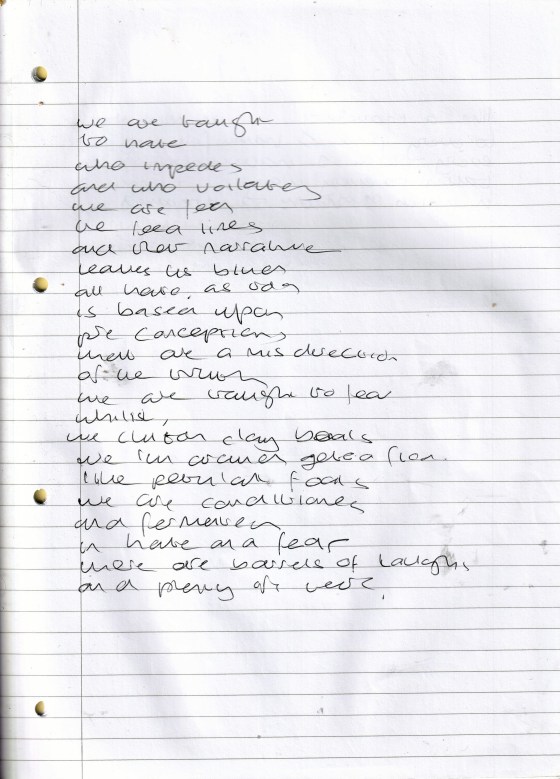 we are taught
to hate
who impedes
and who violates
we are fed
the lines
and their narrative
leaves us blind
all hate, as
is based upon
pre conceptions
these are a misdirection
of the truth
we are taught to fear
whilst,
we clutch clay beads
we
like petulant fools
we are conditioned
and fermented
in hate and fear
there are barrels of laughs
and plenty of